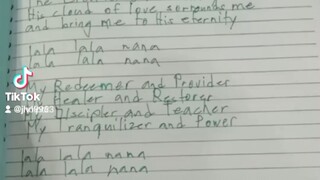 His cloud of love sorrounds me
and bring me to His eternity
lala lala nana
lala lala nana
My Redeemer and Provider
Healer and Restorer
My Discipler and Teacher
My Tranquilizer and Power
lala lala nana
lala lala nana
TikTok